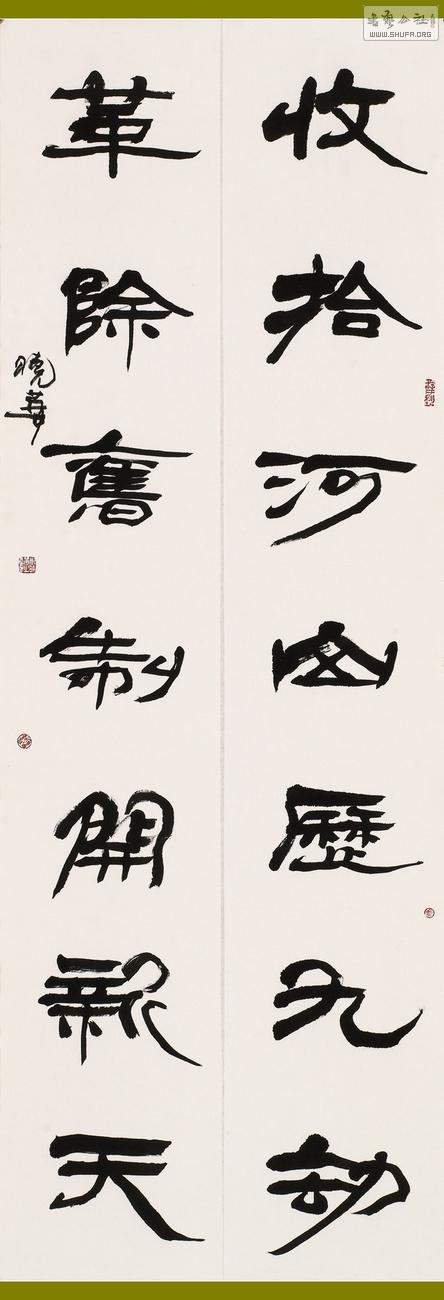 收拾河山歷九劫
革除舊制開新天
曉華
WWW.SHUFA.ORG